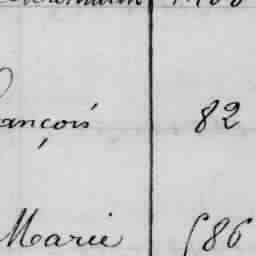 ançois 82
Marie 586